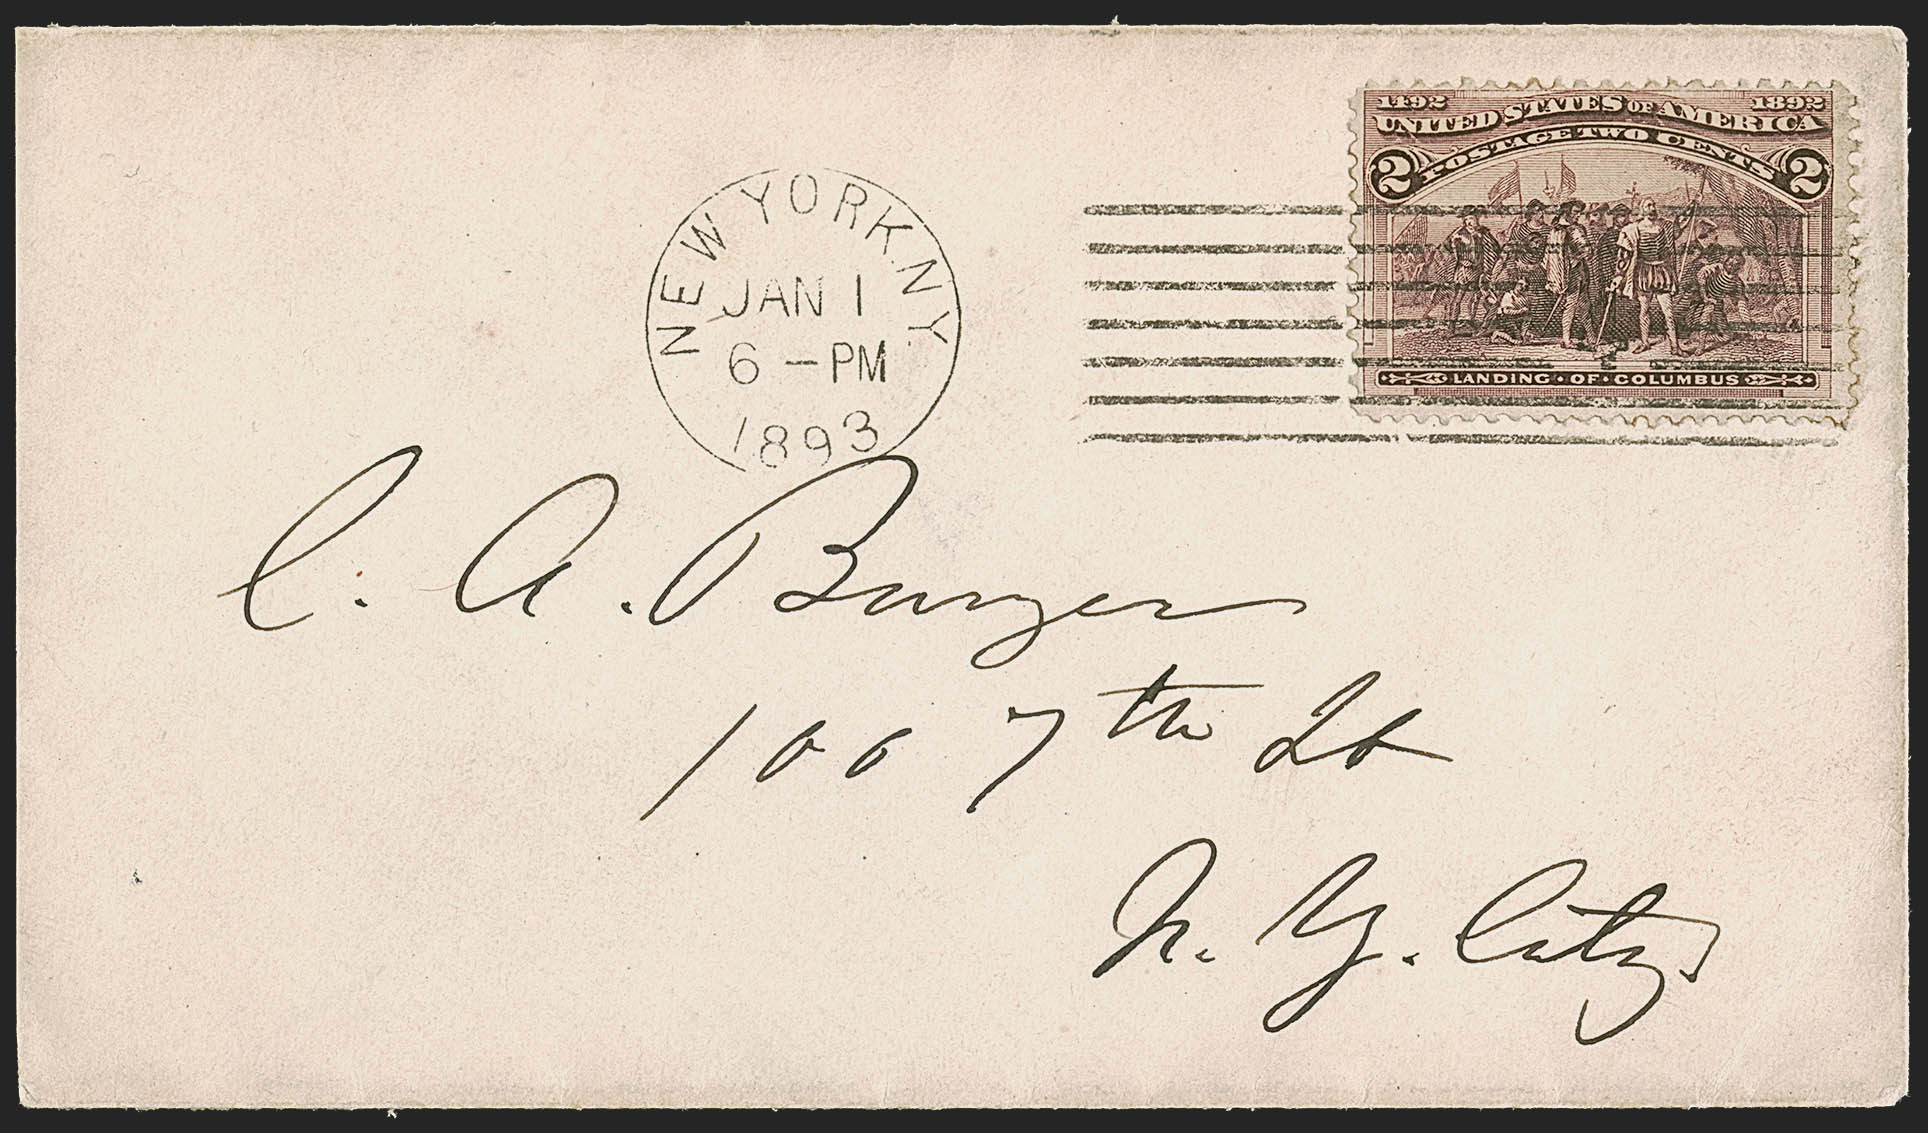 1492 1892
UNITED STATES OF AMERICA
POSTAGE TWO CENTS
2 2
LANDING · OF · COLUMBUS
NEW YORK. N.Y.
JAN 1
6 – PM
1893
C. A. Burger
100 7th St
N. Y. City.